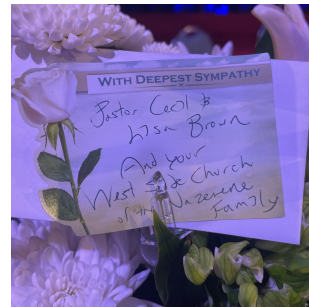 WITH DEEPEST SYMPATHY
Pastor Cecil &
Lisa Brown
And your
West Side Church
of the Nazarene
Family